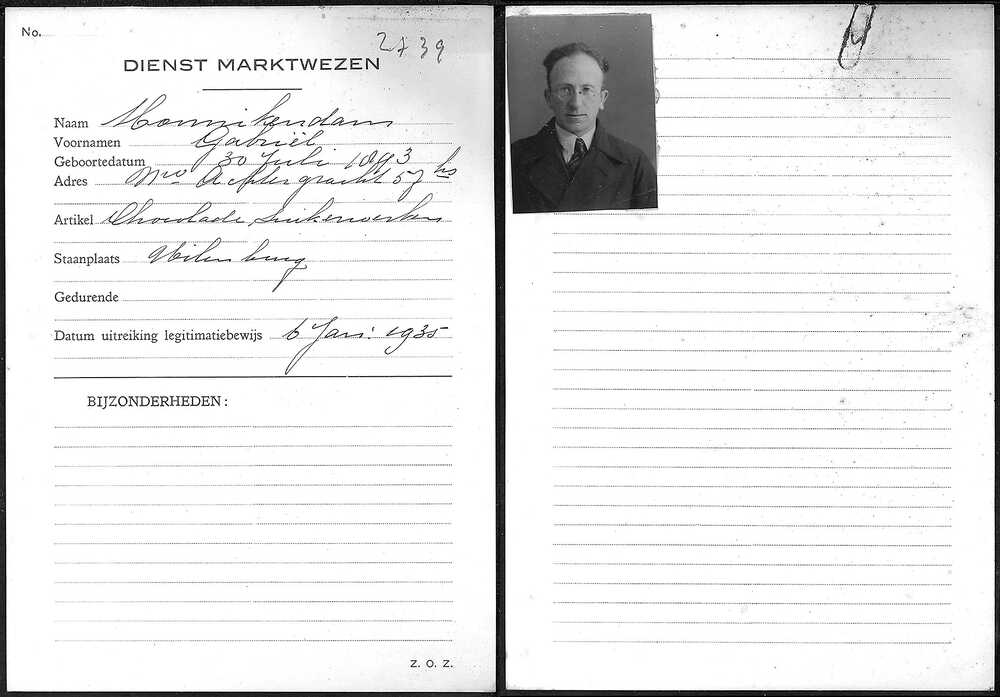 No.
2739
DIENST MARKTWEZEN
Naam Monnikendam
Voornamen Gabriël
Geboortedatum 30 Juli 1893
Adres Nwe Achtergracht 57 hs
Artikel Chocolade, Suikerwerken
Staanplaats Uilenburg
Gedurende
Datum uitreiking legitimatiebewijs 6 Jan: 1935
BIJZONDERHEDEN:
Z. O. Z.